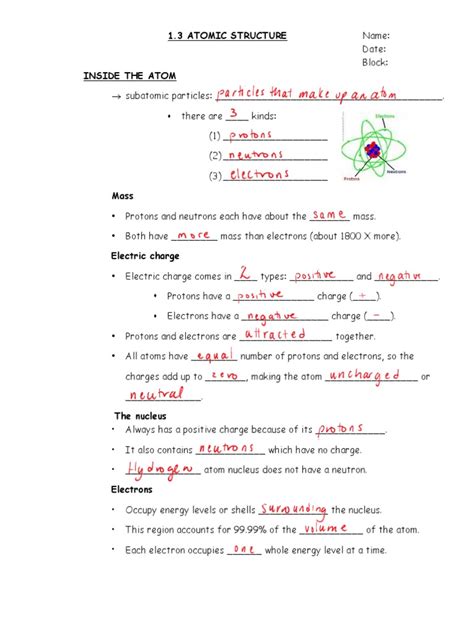 1.3 ATOMIC STRUCTURE
Name:
Date:
Block:
INSIDE THE ATOM
→ subatomic particles: particles that make up an atom.
• there are 3 kinds:
(1) protons
(2) neutrons
(3) electrons
Electrons
Protons
Neutrons
Mass
• Protons and neutrons each have about the same mass.
• Both have more mass than electrons (about 1800 X more).
Electric charge
• Electric charge comes in 2 types: positive and negative.
• Protons have a positive charge (+).
• Electrons have a negative charge (-).
• Protons and electrons are attracted together.
• All atoms have equal number of protons and electrons, so the
charges add up to zero, making the atom uncharged or
neutral.
The nucleus
• Always has a positive charge because of its protons.
• It also contains neutrons which have no charge.
• Hydrogen atom nucleus does not have a neutron.
Electrons
• Occupy energy levels or shells surrounding the nucleus.
• This region accounts for 99.99% of the volume of the atom.
• Each electron occupies one whole energy level at a time.